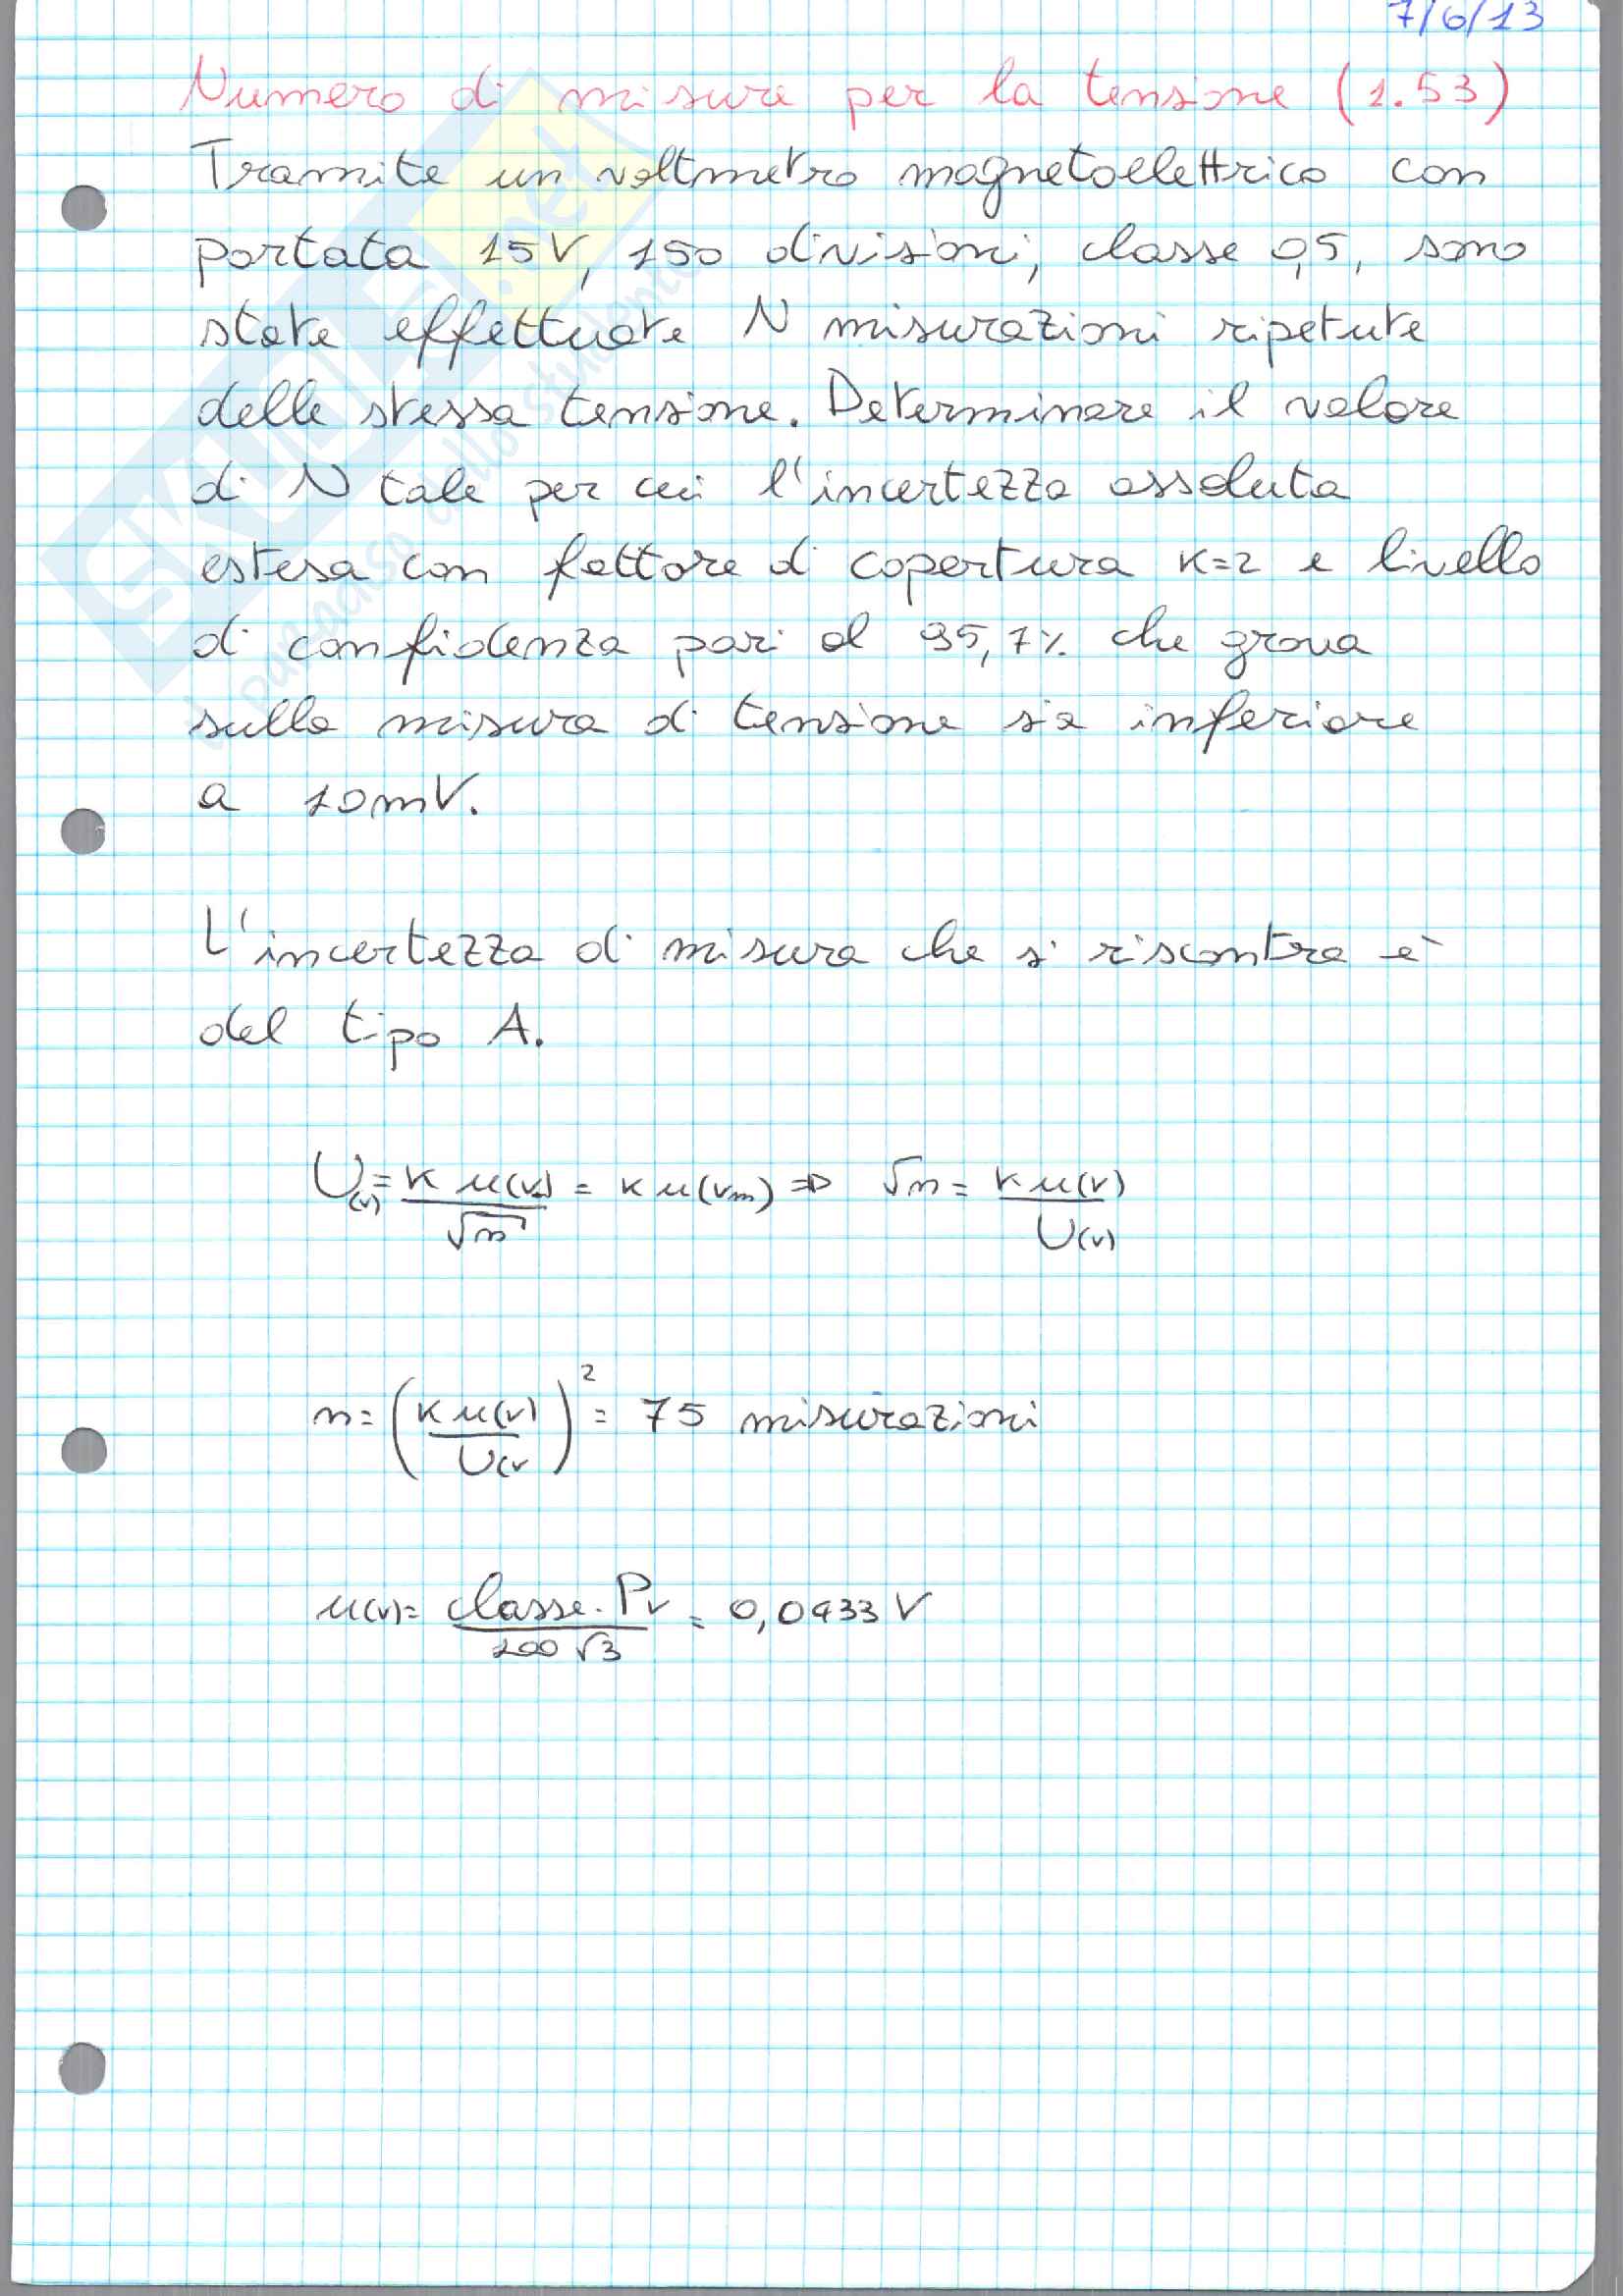 7/6/13
Numero di misure per la tensione (1.53)
Tramite un voltmetro magnetoelettrico con
portata 15V, 150 divisioni, classe 0,5, sono
state effettuate N misurazioni ripetute
delle stessa tensione. Determinare il valore
di N tale per cui l'incertezza assoluta
estesa con fattore di copertura K=2 e livello
di confidenza pari al 95,7% che grava
sulla misura di tensione sia inferiore
a 10mV.
L'incertezza di misura che si riscontra è
del tipo A.
U(v) = K u(v) / √n = K u(vm) ⇒ √n = K u(v) / U(v)
n = (K u(v) / U(v)² = 75 misurazioni
u(v) = classe · Pv / 100 √3 = 0,0433 V
SKUOLA.net
il paradiso dello studente